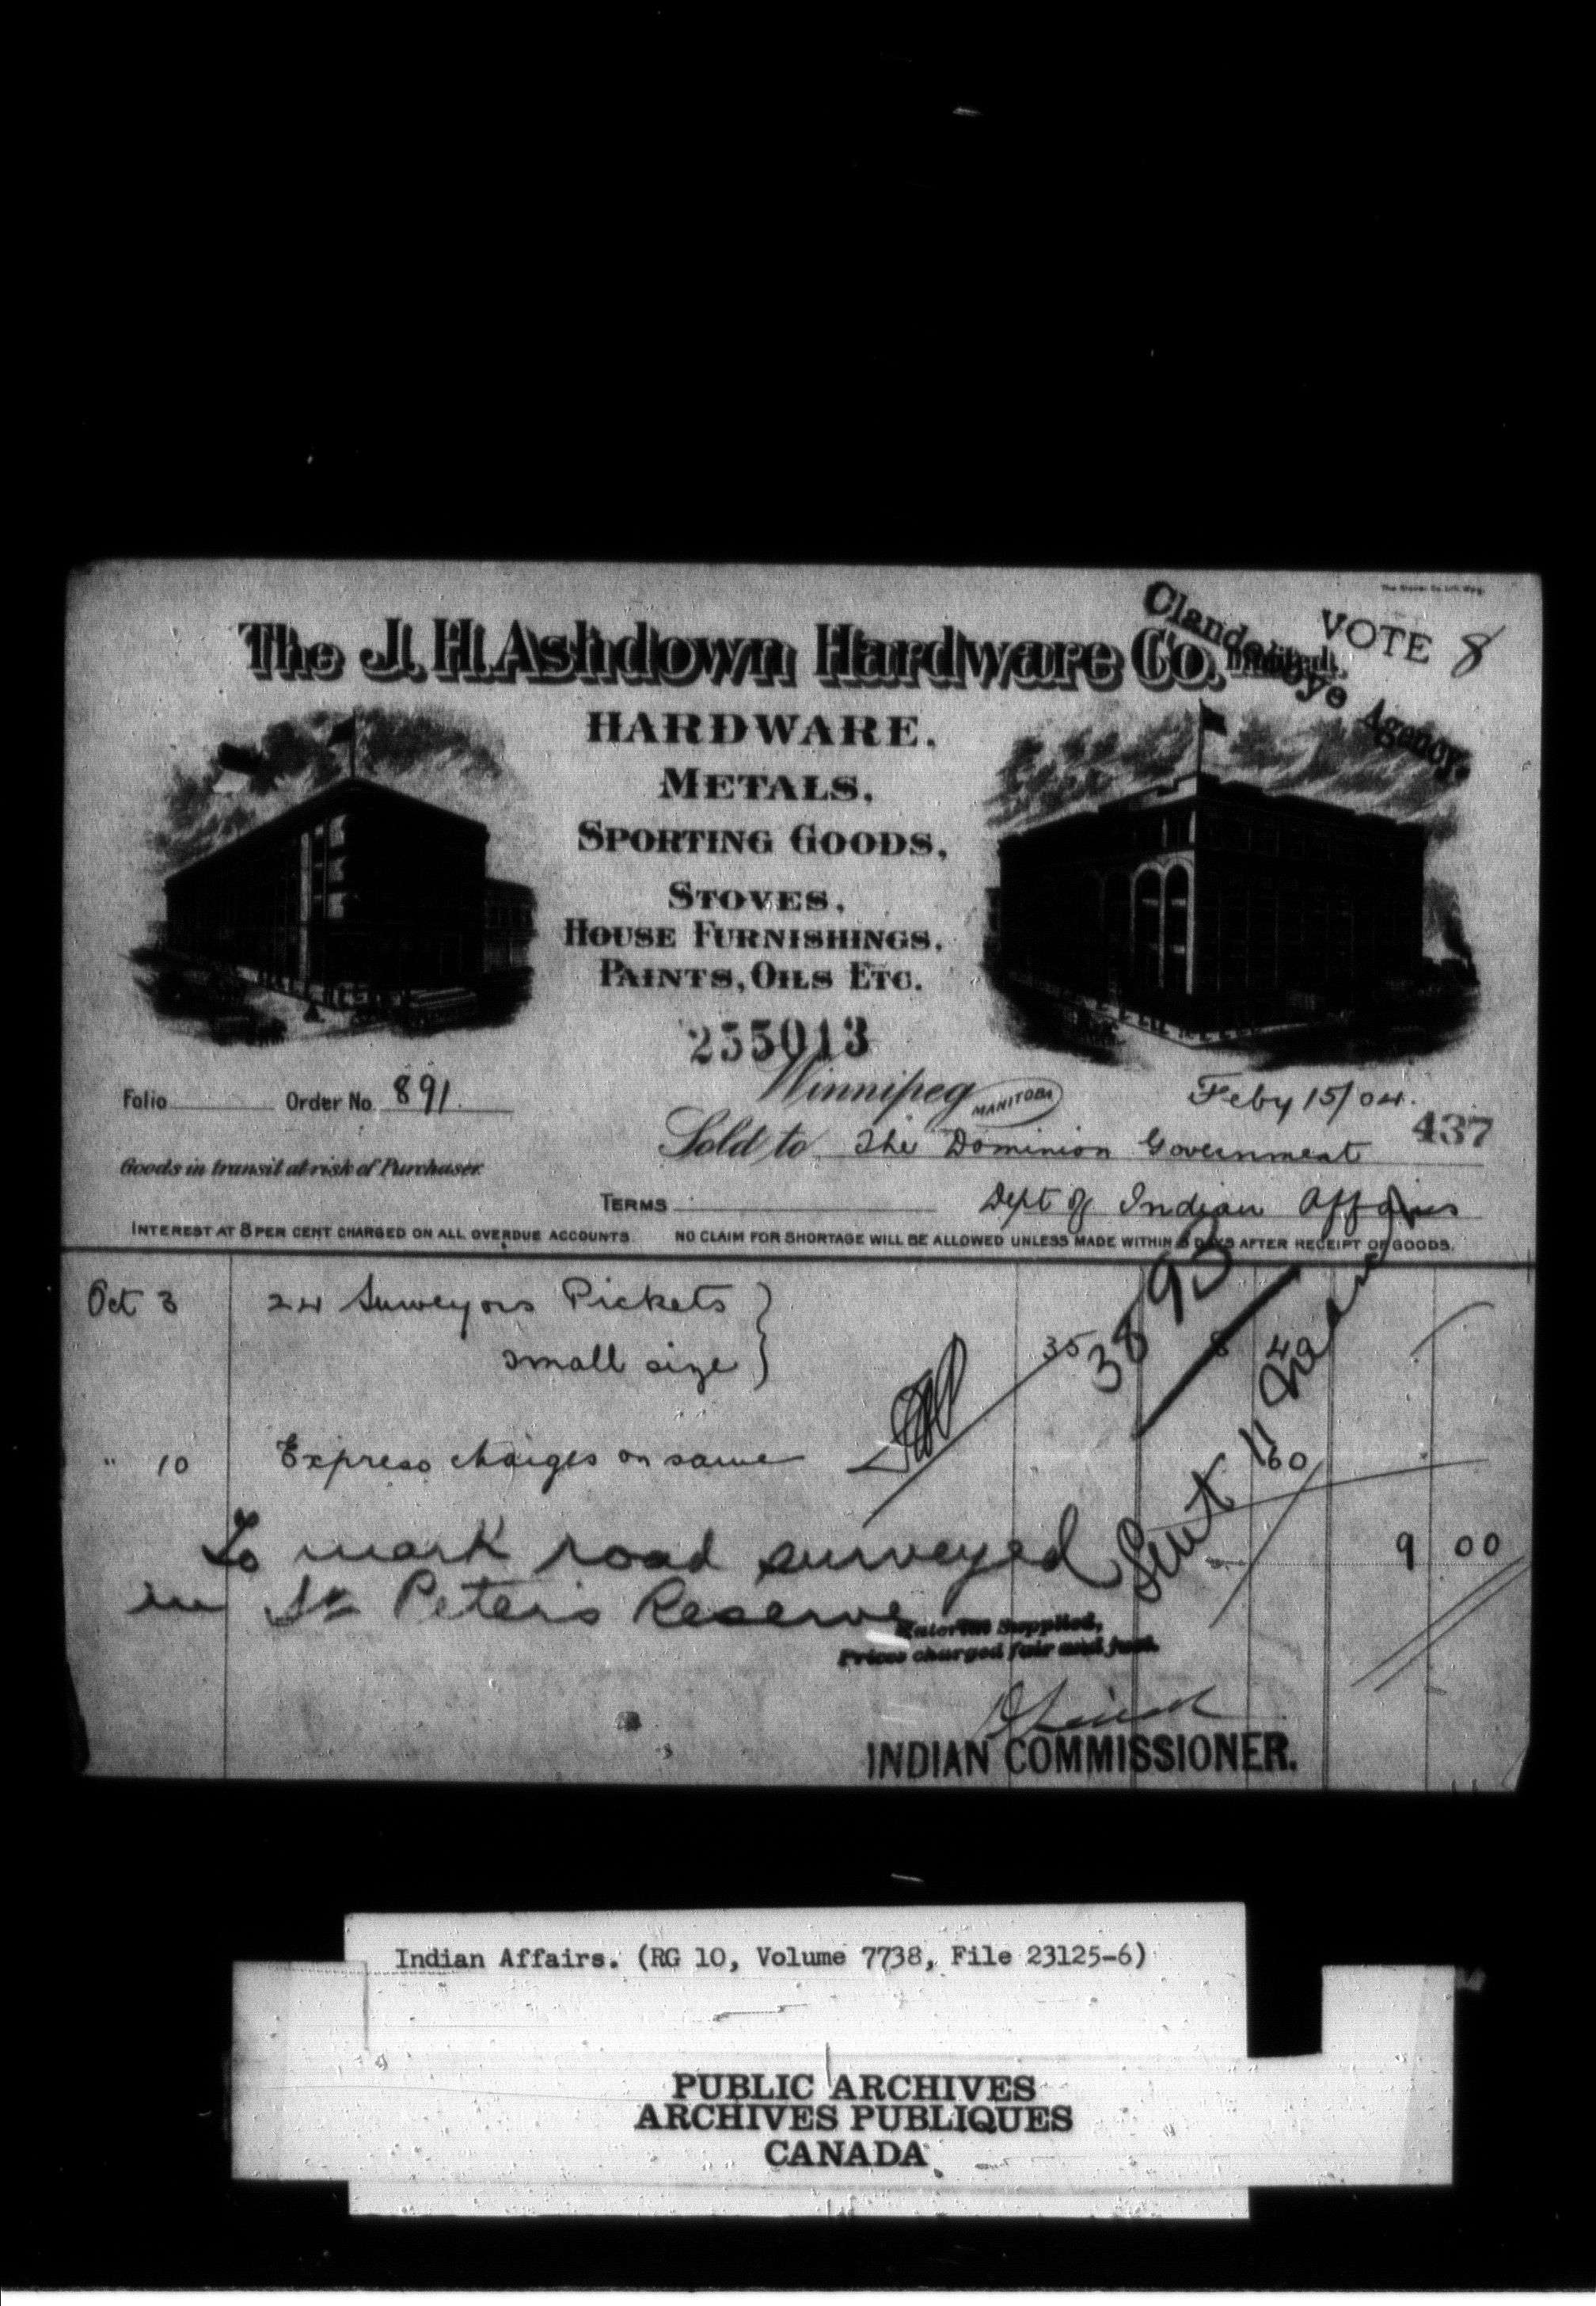 Clandeboye Agency.
VOTE 8
The J. H. Ashdown Hardware Co. Limited.
HARDWARE,
METALS,
SPORTING GOODS,
STOVES,
HOUSE FURNISHINGS,
PAINTS, OILS ETC.
255013
Folio Order No. 891.
Winnipeg MANITOBA Feby 15/04.
437
Sold to The Dominion Government
Goods in transit at risk of Purchaser.
TERMS Dept of Indian Affairs
INTEREST AT 8 PER CENT CHARGED ON ALL OVERDUE ACCOUNTS. NO CLAIM FOR SHORTAGE WILL BE ALLOWED UNLESS MADE WITHIN 5 DAYS AFTER RECEIPT OF GOODS.
Oct 3 24 Surveyors Pickets 35 8 40
small size
3893
" 10 Express charges on same 60
Sent 11
To mark road surveyed
9 00
in St Peter's Reserve
Material Supplied,
Prices charged fair and just.
INDIAN COMMISSIONER.
Indian Affairs. (RG 10, Volume 7738, File 23125-6)
PUBLIC ARCHIVES
ARCHIVES PUBLIQUES
CANADA